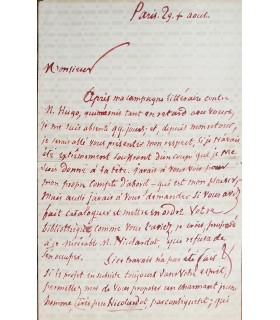 Paris. 29. + aout.
Monsieur
Après ma campagne littéraire contre
M. Hugo, qui m'a mis tant en retard avec vous,
je me suis absenté 99. jours; et, depuis mon retour,
je serais allé vous présenter mon respect, si je n'avais
été extrêmement souffrant d'un coup que je me
suis donné à la tête. J'avais à vous voir pour
mon propre compte d'abord — qui est mon plaisir;
mais aussi j'avais à vous demander si vous avez
fait cataloguer et mettre en ordre votre
bibliothèque comme vous l'aviez, je crois, proposé
à ce misérable N. Nicolardot, qui refusa de
s'en occuper. Ce travail n'a pas été fait?
si le projet en subsiste toujours dans votre esprit,
permettez-moi de vous proposer un charmant jeune
homme très peu Nicolardot par conséquent; qui